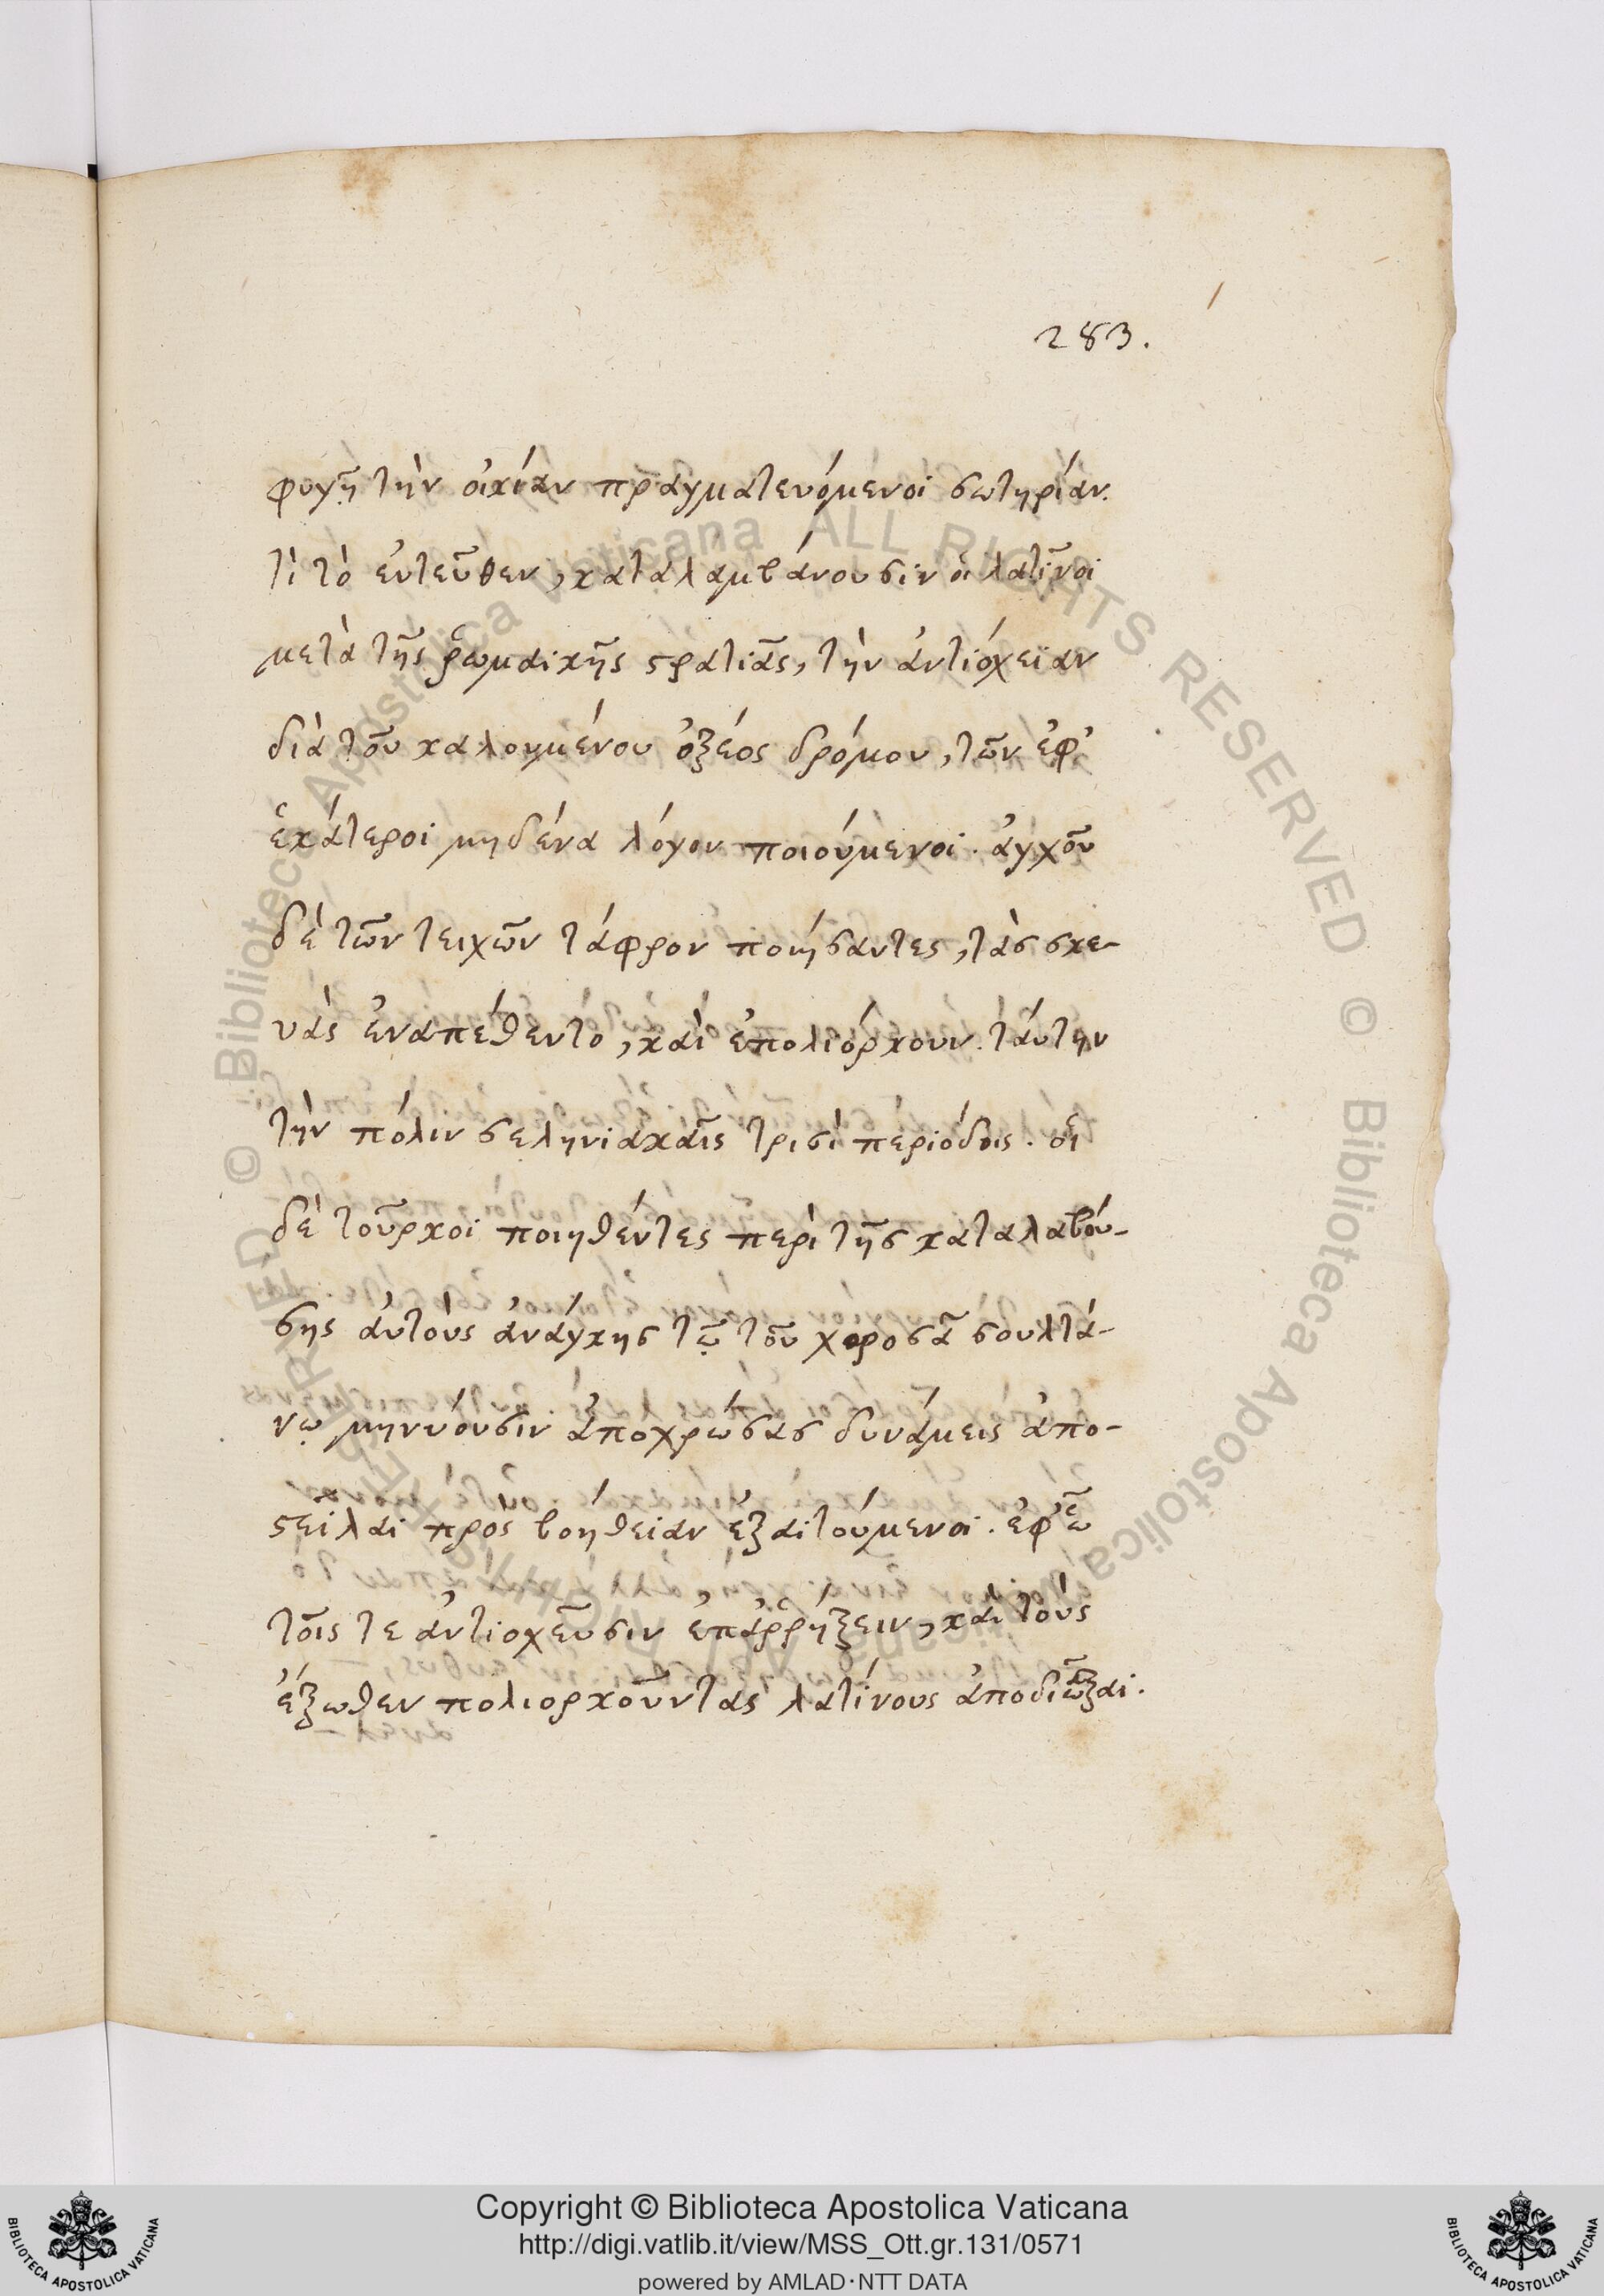 283.
φυγῇ τὴν οἰκίαν πραγματευόμενοι σωτηρίαν.
τί τὸ ἐντεῦθεν, καταλαμβάνουσιν οἱ λατῖνοι
μετὰ τῆς ῥωμαικῆς στρατιᾶς, τὴν ἀντιόχειαν
διὰ τοῦ καλουμένου ὀξέος δρόμου, τῶν ἐφ'
ἑκάτεροι μηδένα λόγον ποιούμενοι. ἀγχοῦ
δὲ τῶν τειχῶν τάφρον ποιήσαντες, τὰς σκε-
υὰς ἐναπέθεντο, καὶ ἐπολιόρκουν. ταύτην
τὴν πόλιν σεληνιακαῖς τρισὶ περιόδοις. οἱ
δὲ τοῦρκοι ποιηθέντες περὶ τῆς καταλαβού-
σης ἀυτοὺς ἀνάγκης τῷ τοῦ χοροσᾶ σουλτά-
νῳ μηνύουσιν ἀποχρώσας δυνάμεις ἀπο-
στεῖλαι πρὸς βοήθειαν ἐξαιτούμενοι. ἐφ' ῶ
τοῖς τε ἀντιοχεῦσιν ἐπάρρήξειν, καὶ τοὺς
ἔξωθεν πολιορκοῦντας λατίνους ἀποδιῶξαι.
Copyright © Biblioteca Apostolica Vaticana
http://digi.vatlib.it/view/MSS_Ott.gr.131/0571
powered by AMLAD·NTT DATA
BIBLIOTECA APOSTOLICA VATICANA
BIBLIOTECA APOSTOLICA VATICANA
© Biblioteca Apostolica Vaticana ALL RIGHTS RESERVED
© Biblioteca Apostolica Vaticana ALL RIGHTS RESERVED